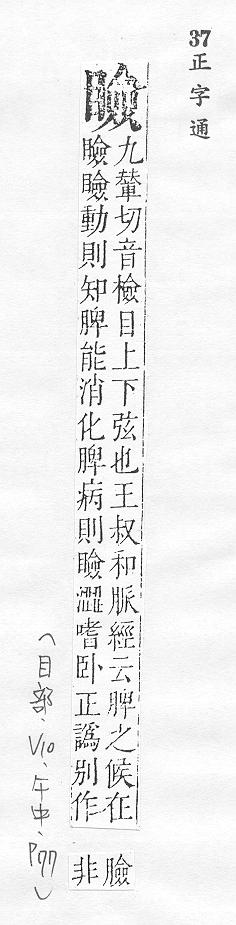 37
正字通
瞼
九輦切音檢目上下弦也王叔和脈經云脾之候在
瞼瞼動則知脾能消化脾病則瞼澀嗜卧正譌別作
臉
非
(目部、V10、午中、P77)